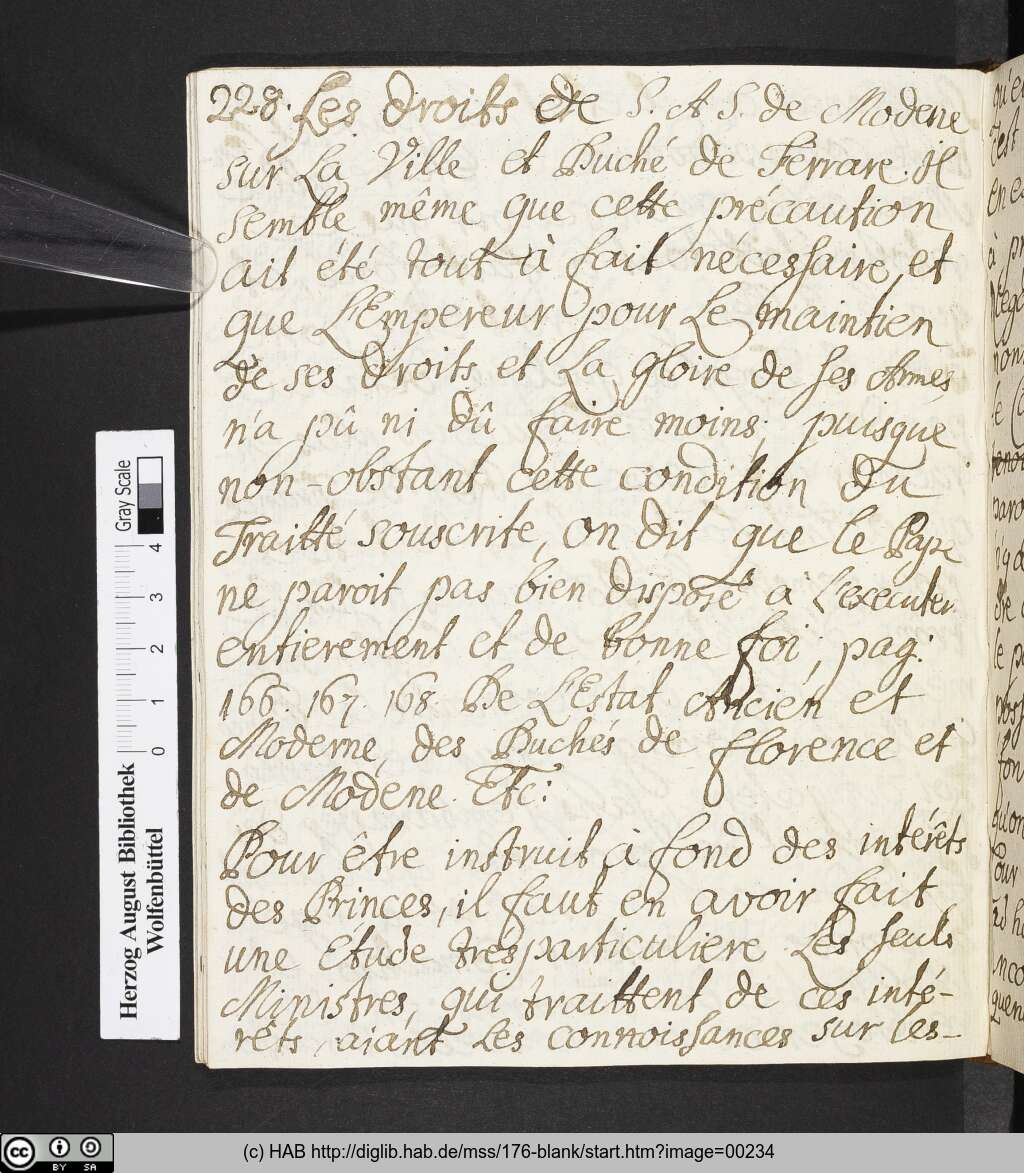 228. Les droits de S. A S. de Modene
sur La Ville et Duché de Ferrare. Il
semble même que cette précaution
ait été tout à fait nécessaire, et
que L'Empereur pour Le maintien
de ses droits et La gloire de ses Armes
n'a pû ni dû faire moins; puisque
non-obstant cette condition du
Traitté souscrite, on dit que le Pape
ne paroit pas bien disposé à L'executer
entierement et de bonne foi, pag.
166. 167. 168. De L'Estat Ancién et
Moderne, des Duchés de florence et
de Modene. Etc:
Pour être instruit à fond des intérêts
des Princes, il faut en avoir fait
une Etude trés particuliere Les seuls
Ministres, qui traittent de ces inté-
rêts, aiant Les connoissances sur les-
qu'e
c'est
à
le
le p
Pour
quen
Herzog August Bibliothek
Wolfenbüttel
0 1 2 3 4
Gray Scale
cc BY SA
(c) HAB http://diglib.hab.de/mss/176-blank/start.htm?image=00234